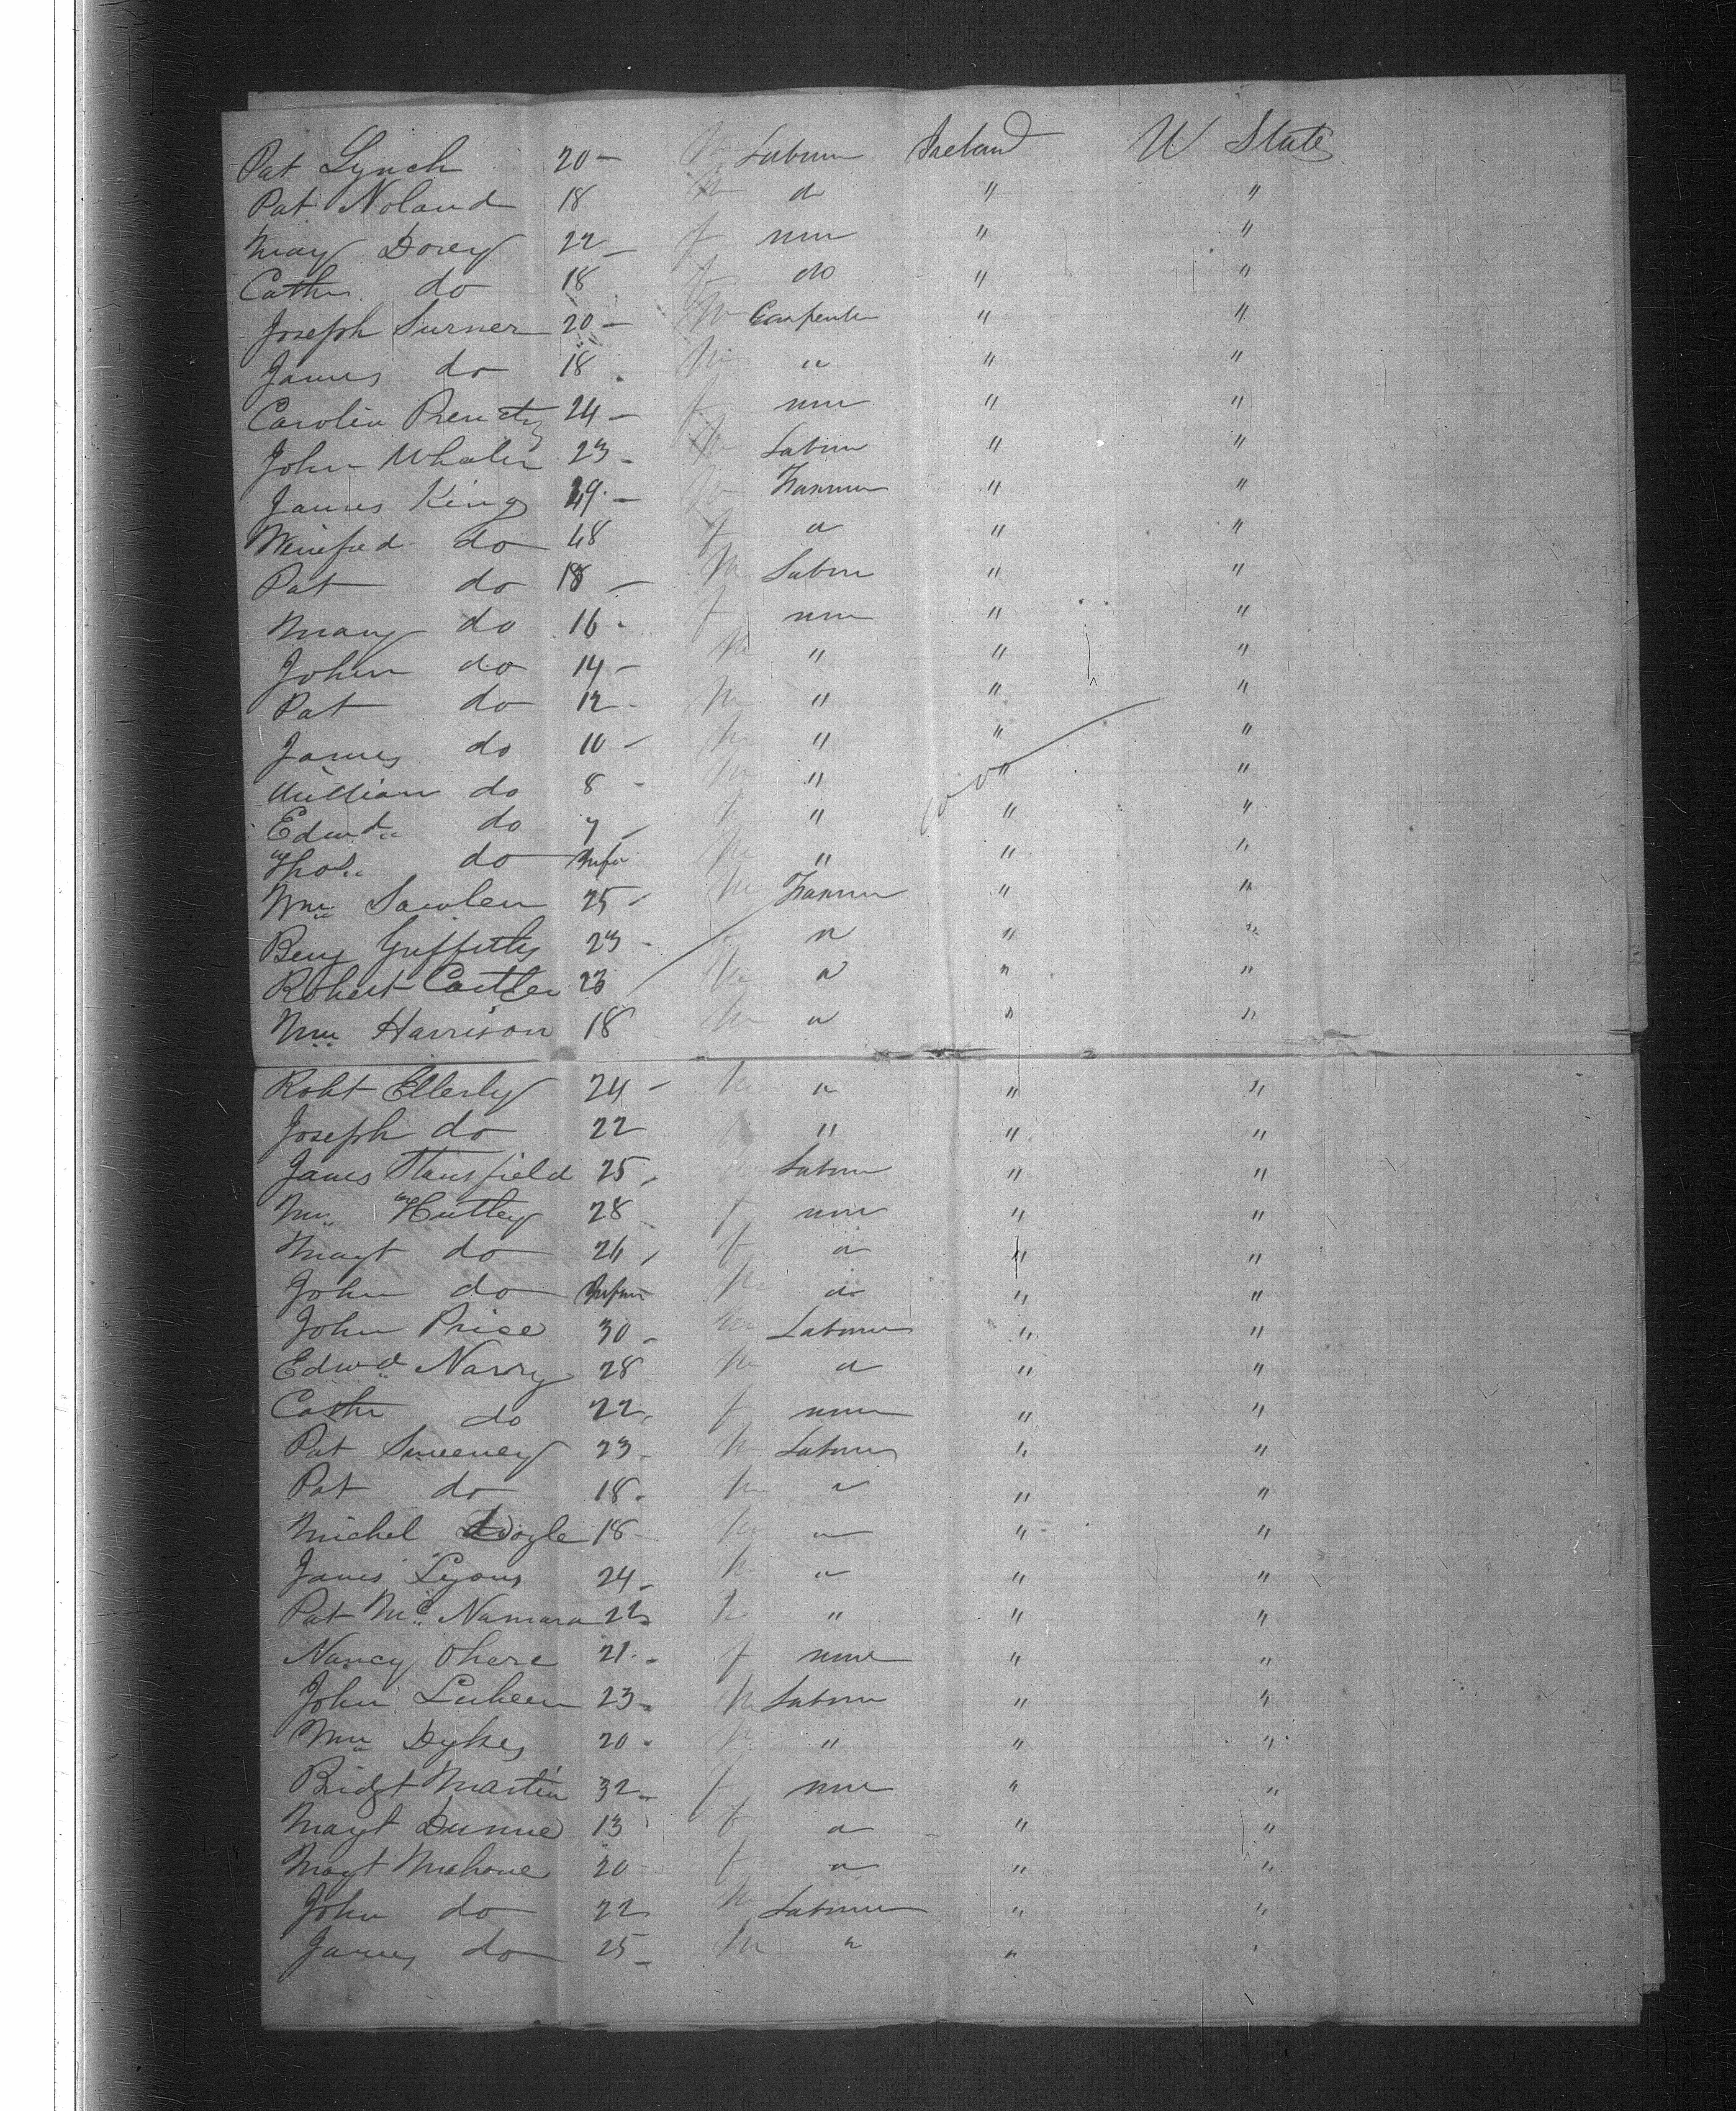 Pat Lynch 20 - M Labour Ireland U States
Pat Noland 18 M do " "
May Dorey 22 - f none " "
Cathn do 18 f do " "
Joseph Surner 20 - M Carpenter " "
James do 18 M " " "
Carolin 24 - f none " "
John Whalen 23 - M Labour " "
James King 49 - M Farmer " "
Winifred do 48 f " " "
Pat do 18 - M Labour " "
Mary do 16 - f none " "
John do 14 - M " " "
Pat do 12 - M " " "
James do 10 - M " " "
William do 8 - M " " "
Edwd do 7 - M " " "
Thos do Infn M " " "
Wm 25 - M Farmer " "
Benj Griffiths 23 - " " "
Robert 23 M " " "
Wm Harrison 18 M " " "
Robt Ellerly 24 - M " " "
Joseph do 22 " " "
James Stansfield 25 - M Labour " "
Hutley 28 f none " "
Magt do 26 - f " " "
John do Infan M do " "
John Price 30 - M Labourer " "
Edwd Narry 28 M " " "
Cathn do 22 - f none " "
Pat Sweeney 23 - M Labourer " "
Pat do 18 - M " " "
Michel Doyle 18 - M " " "
James Lyons 24 - M " " "
Pat McNamara 22 - M " " "
Nancy Ohere 21 - f none " "
John 23 - M Labour " "
Wm Dykes 20 - M " " "
Bridgt Martin 32 - f none " "
Magt Dunne 13 f " " "
Magt Mahone 20 - f " " "
John do 22 M Labourer " "
James do 25 - M " " "